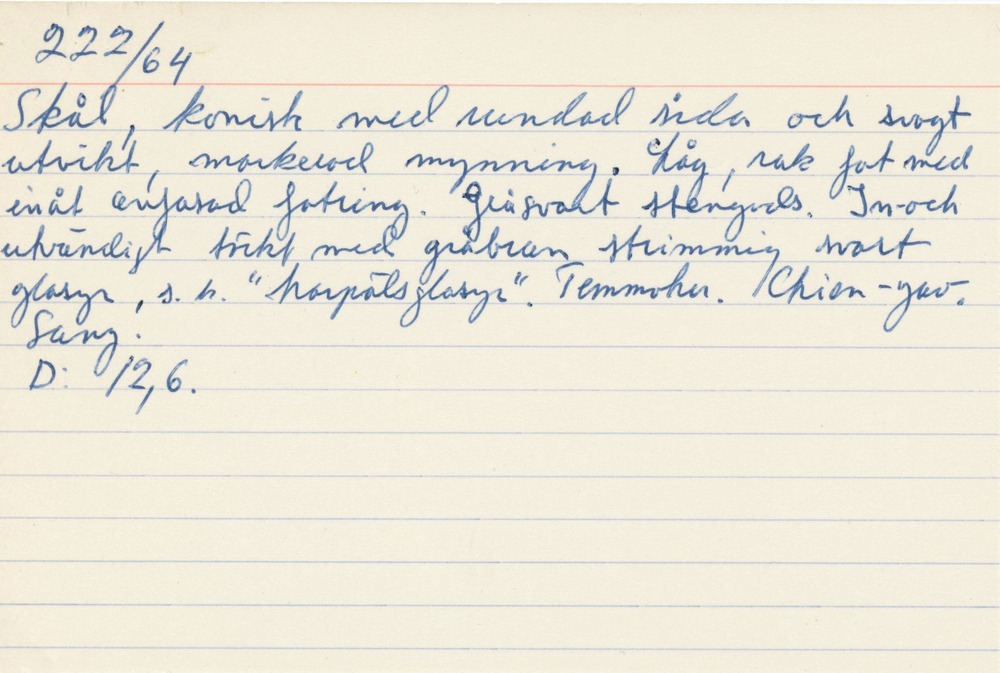 222/64
Skål, konisk med rundad sida och svagt
utvikt, markerad mynning. Låg, rak fot med
inåt avfasad fotring. Gråsvart stengods. In- och
utvändigt täckt med gråbrun strimmig svart
glasyr, s. k. "harpälsglasyr". Temmoku. Chien-yao.
Sung.
D: 12,6.